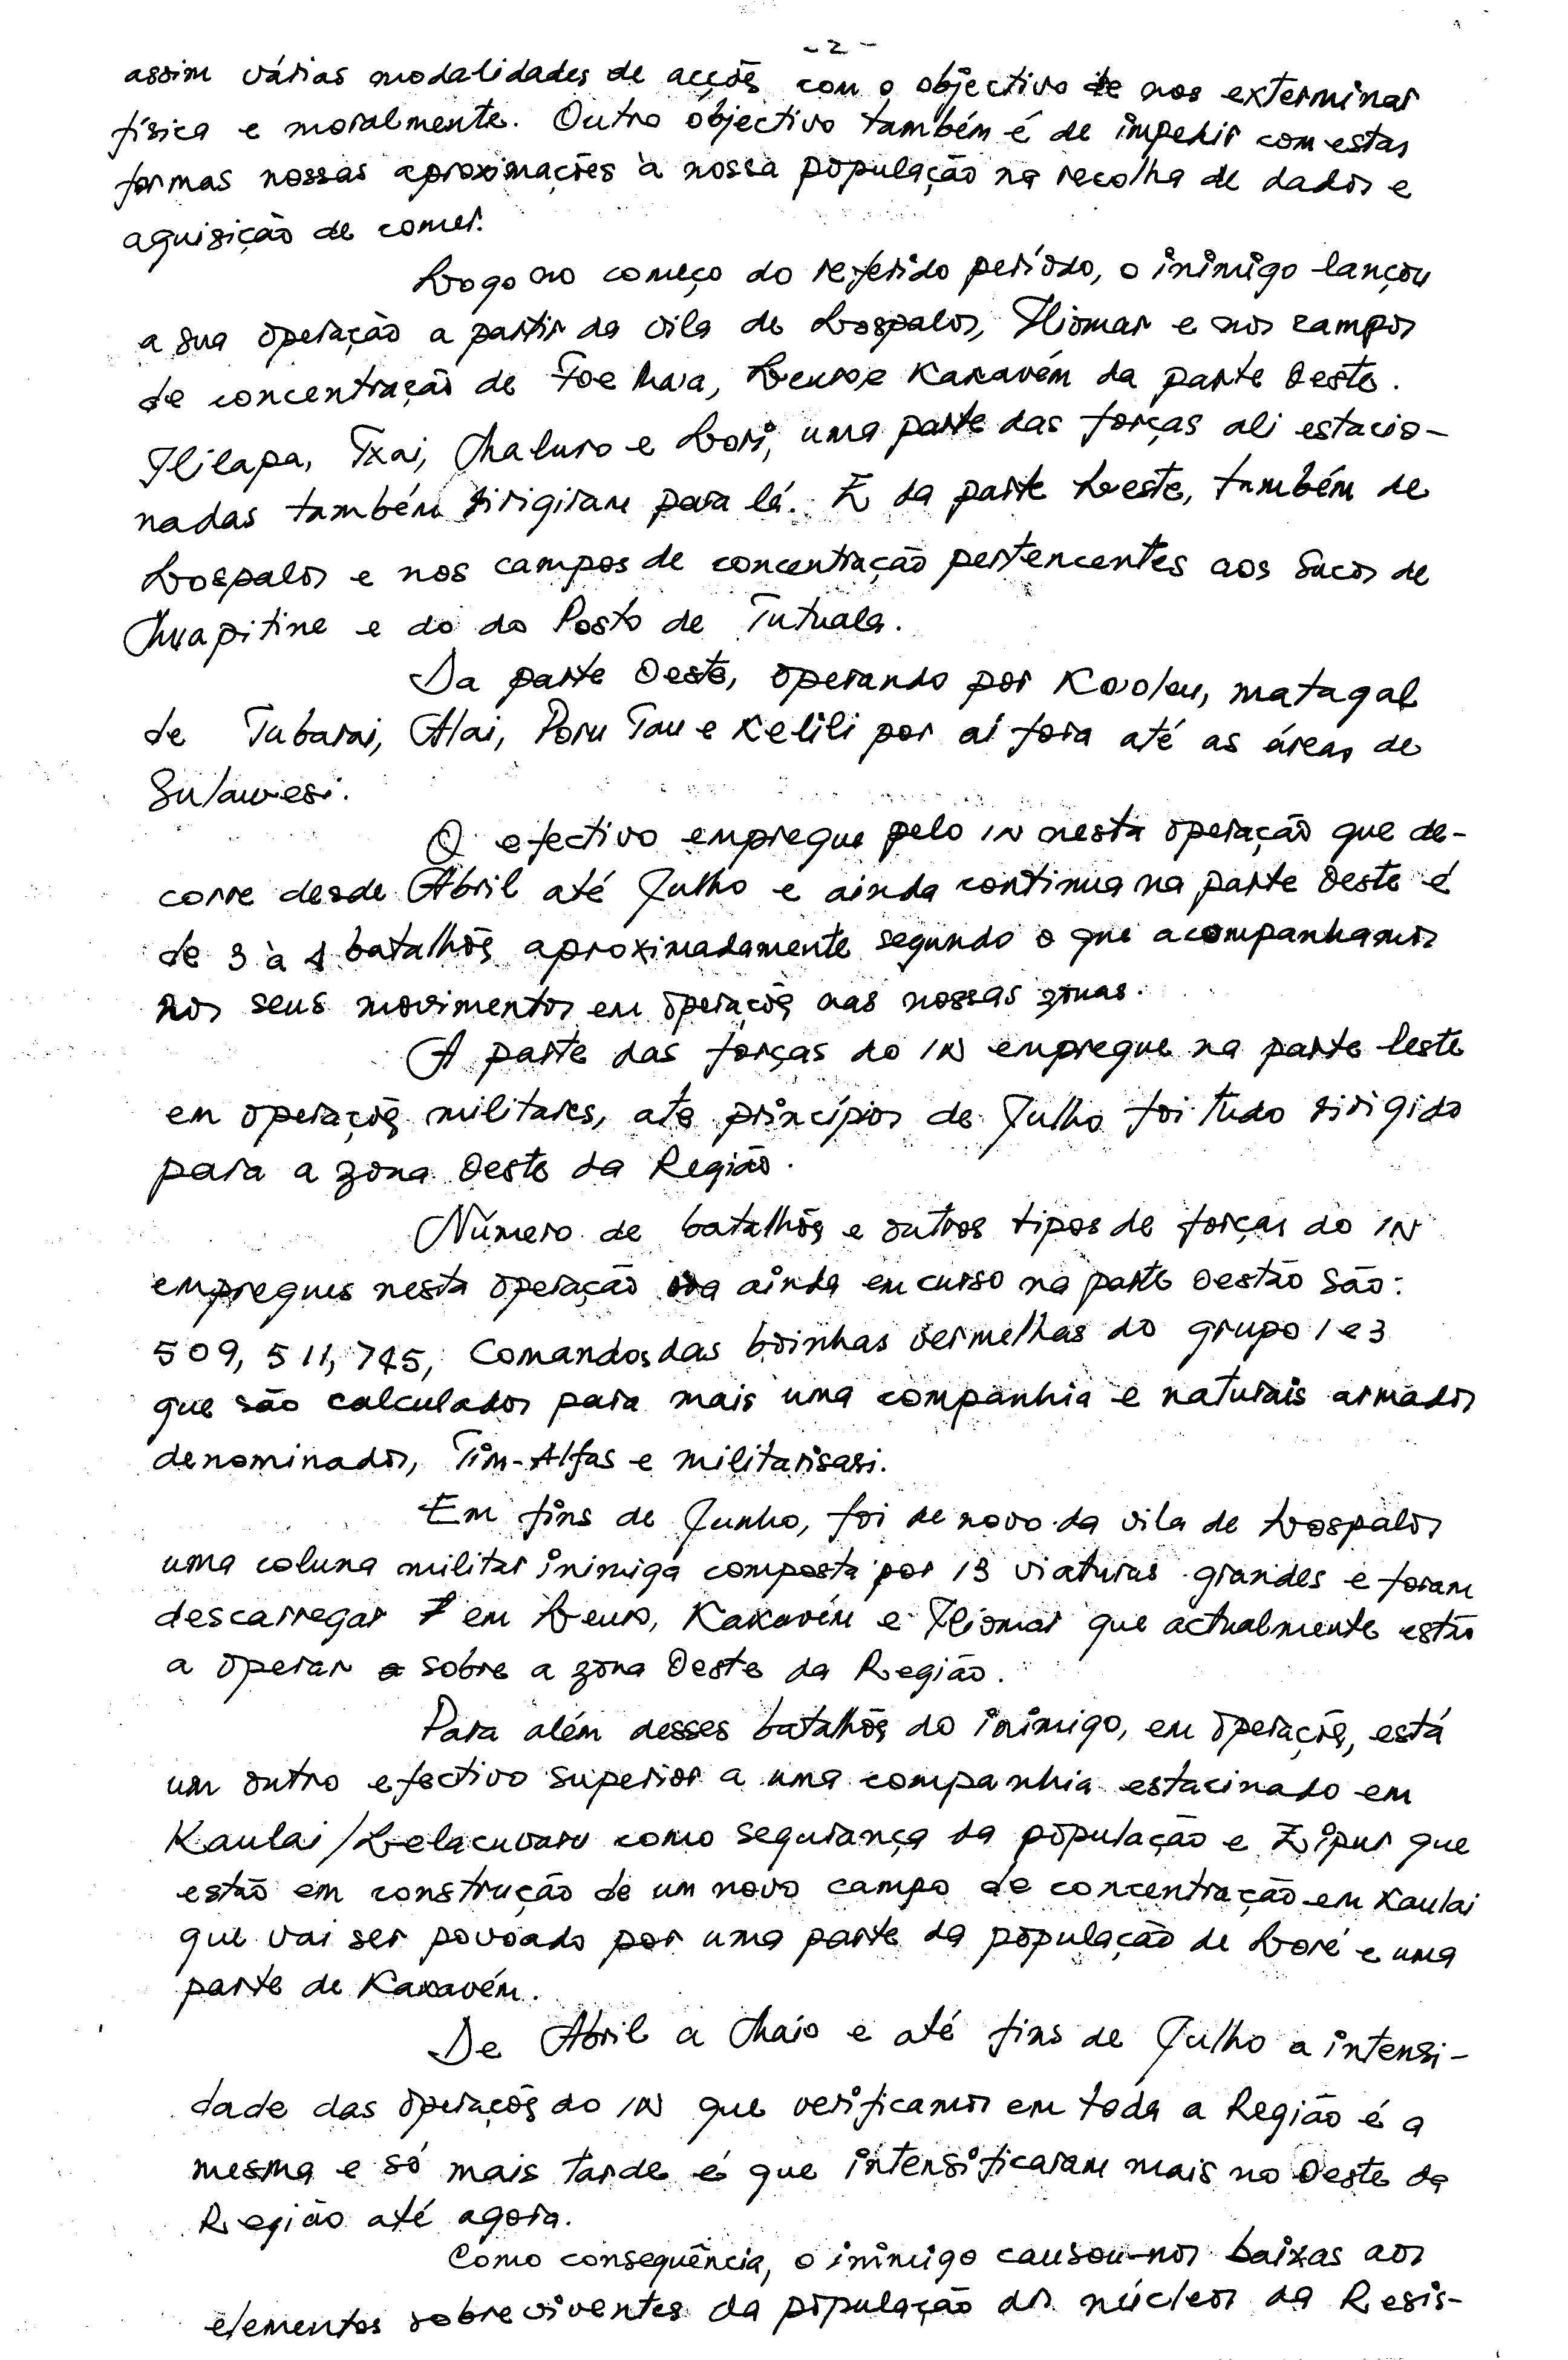 - 2 -
assim várias modalidades de acções com o objectivo de nos exterminar
física e moralmente. Outro objectivo também é de impedir com estas
formas nossas aproximações à nossa população na recolha de dados e
aquisição de comer.
Logo no começo do referido período, o inimigo lançou
a sua operação a partir da vila de Lospalos, Iliomar e nos campos
de concentração de Foe Maia, Leuro e Kakavém da parte Oeste.
Ililapa, Txai, Maluro e Lori, uma parte das forças ali estacio-
nadas também dirigiram para lá. E da parte Leste, também de
Lospalos e nos campos de concentração pertencentes aos Sucos de
Muapitine e do do Posto de Tutuala.
Da parte Oeste, operando por Kovoleu, matagal
de Tubarai, Alai, Poru Tau e Kelili por aí fora até as áreas de
Sulawesi.
O efectivo empregue pelo IN nesta operação que de-
corre desde Abril até Julho e ainda continua na parte Oeste é
de 3 à 4 batalhões aproximadamente segundo o que acompanhamos
nos seus movimentos em operações nas nossas zonas.
A parte das forças do IN empregue na parte leste
em operações militares, até princípios de Julho foi tudo dirigido
para a zona Oeste da Região.
Número de batalhões e outros tipos de forças do IN
empregues nesta operação ainda em curso na parte Oestão são:
509, 511, 745, Comandos das boinhas vermelhas do grupo 1 e 3
que são calculados para mais uma companhia e naturais armados
denominados, Tim-Alfas e militarisasi.
Em fins de Junho, foi de novo da vila de Lospalos
uma coluna militar inimiga composta por 13 viaturas grandes e foram
descarregar em Leuro, Kakavém e Iliomar que actualmente estão
a operar sobre a zona Oeste da Região.
Para além desses batalhões do inimigo, em operações, está
um outro efectivo superior a uma companhia estacinado em
Kaulai/Lelacuvaru como segurança da população e Zipur que
estão em construção de um novo campo de concentração em Kaulai
que vai ser povoado por uma parte da população de Loré e uma
parte de Kakavém.
De Abril a Maio e até fins de Julho a intensi-
dade das operações do IN que verificamos em toda a Região é a
mesma e só mais tarde é que intensificaram mais no Oeste da
Região até agora.
Como consequência, o inimigo causou-nos baixas aos
elementos sobreviventes da população dos núcleos da Resis-